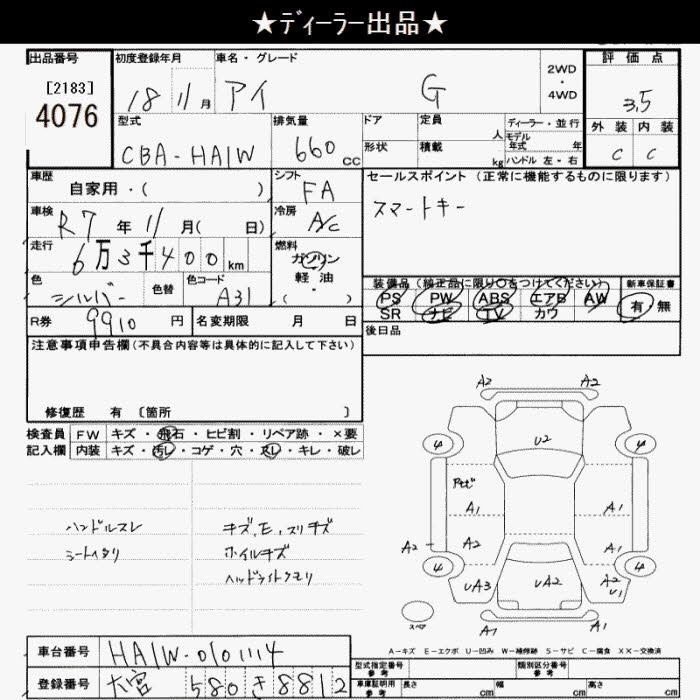 ★ディーラー出品★
出品番号 初度登録年月 車名・グレード 2WD・4WD 評価点
[2183] 18 11月 アイ G 3.5
4076 型式 排気量 ドア 定員 人 ディーラー・並行 外装 内装
CBA-HA1W 660cc 形状 積載 kg モデル年式 年 ハンドル 左・右 C C
車歴 自家用・( ) シフト FA セールスポイント(正常に機能するものに限ります)
車検 R7年11月( 日) 冷房 A/C スマートキー
走行 6万3千400km 燃料 ガソリン 軽油・( )
色 シルバー 色替 色コード A31 装備品(純正品に限り○をつけてください) 新車保証書
PS PW ABS エアB AW 有・無
SR ナビ TV カワ
R券 9910円 名変期限 月 日 後日品
注意事項申告欄(不具合内容等は具体的に記入して下さい)
修復歴 有 〔箇所 〕
検査員 FW キズ・飛石・ヒビ割・リペア跡・×要
記入欄 内装 キズ・汚レ・コゲ・穴・スレ・キレ・破レ
ハンドルスレ キズ,E,スリキズ
シートヘタリ ホイルキズ
ヘッドライトクモリ
A2 A2
4 U2 4
A1 A1
A2 A2 A1
4 4
UA3 UA2 A2 U1
A1 A1
スペア
A-キズ E-エクボ U-凹み W-補修跡 S-サビ C-腐食 XX-交換済
車台番号 HA1W-0101114 型式指定番号 参考 類別区分番号 参考
登録番号 大宮 580 き 8812 車庫証明用 参考 長さ cm 幅 cm 高さ cm